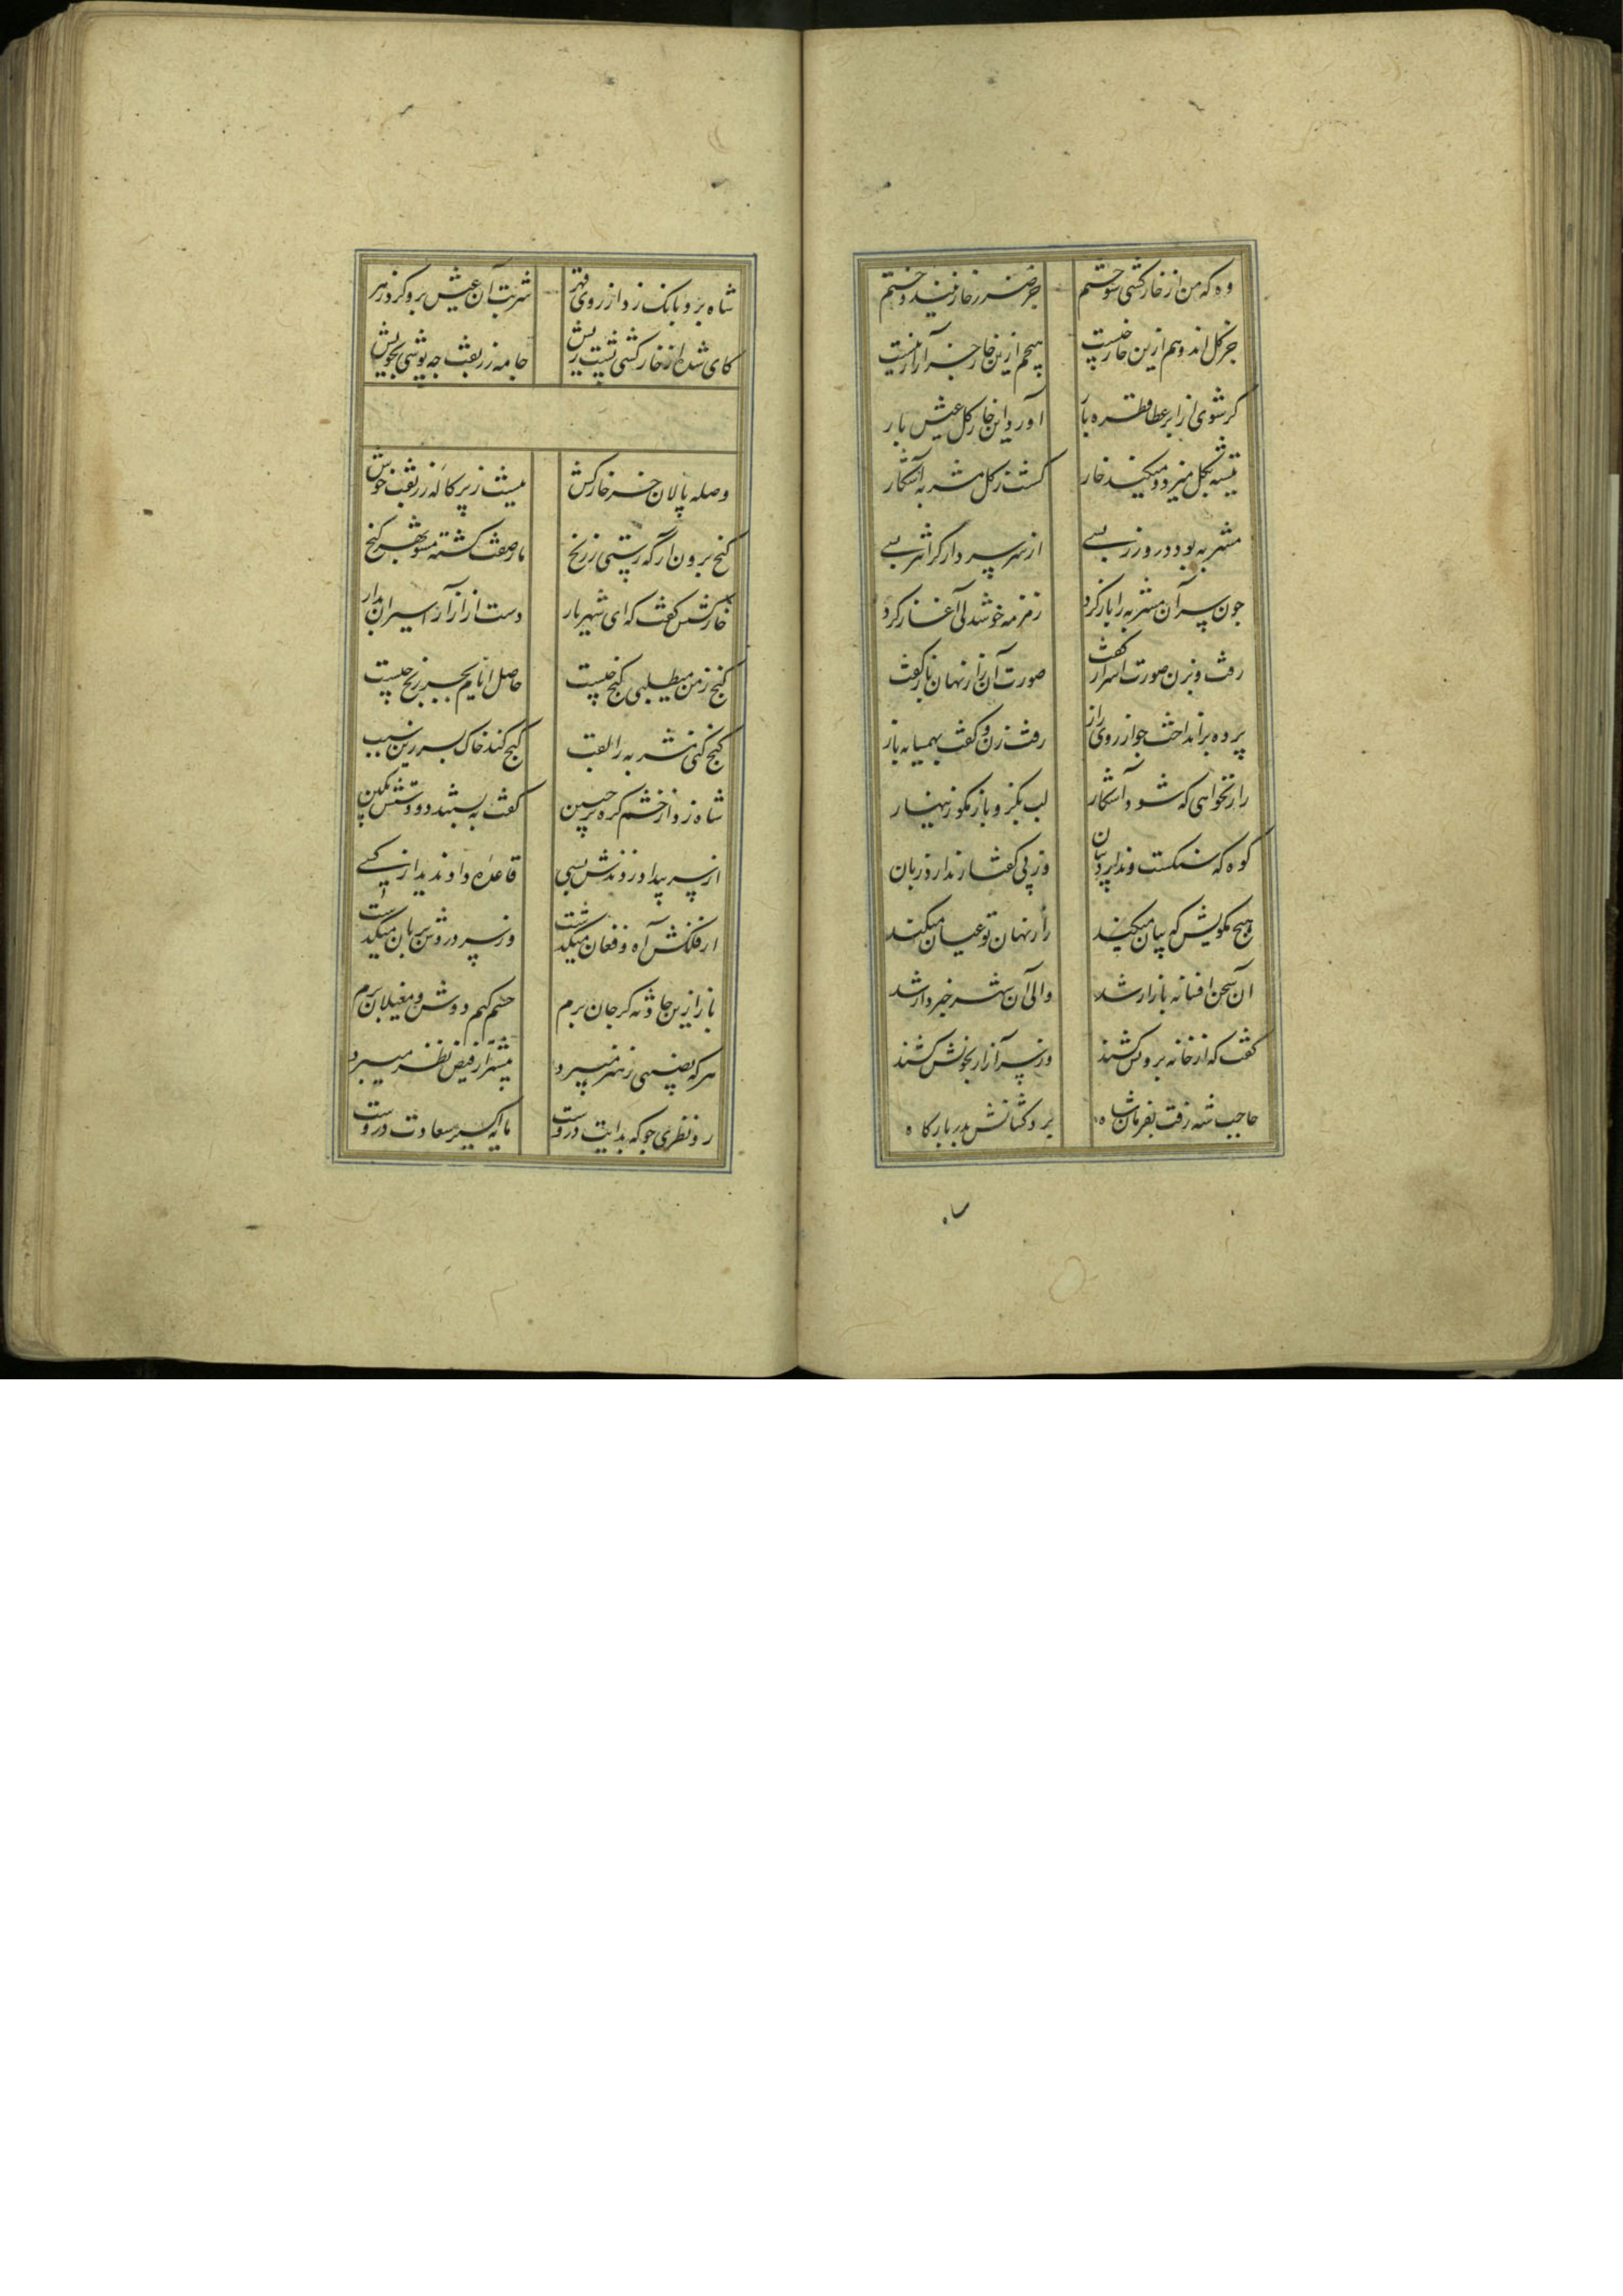 وه که من از خارکشی سوختم جز ضرر خار نیندوختم
جز گل اندوهم ازین خار چیست هیچم ازین خار جز آزار نیست
کر شوی از ابر عطا قطره بار آورد این خار گل عیش بار
تیشه بگل میزد و میکند خار گشت ز گل مشربه آشکار
مشربه بود درو زر بسی
چون سر آن مشربه را باز کرد زمزمه خوشدلی آغاز کرد
رفت و بزن صورت اسرار گفت صورت آن راز نهان باز گفت
پرده برانداخت چو از روی راز رفت زن و گفت بهمسایه باز
راز نخواهی که شود آشکار لب بگز و باز مگو زینهار
کوه که سنگست و ندارد بیان وز پی گفتار ندارد زبان
هیچ مگویش که بیان میکند راز نهان تو عیان میکند
آن سخن افسانه بازار شد والی آن شهر خبردار شد
گفت که از خانه برونش کشند وز سر آزار بخونش کشند
حاجب شه رفت بفرمان شاه برد کشانش بدر بارگاه
شاه برو بانک زد از روی قهر شربت آن عیش برو کرد زهر
کای شده از خارکشی پشت ریش جامه زربفت چه پوشی بخویش
وصله پالان خر خارکش نیست ز پرکاله زربفت خوش
گنج برون آر که رستی ز رنج مار صفت گشته مشو بهر گنج
خارکشش گفت که ای شهریار دست از آزار اسیران بدار
گنج ز من میطلبی گنج چیست حاصل ایام بجز رنج چیست
گنج کنی مشربه را لقب گنج کند خاک بسر زین سبب
شاه زد از خشم گره بر جبین گفت ببستند دو دستش بکین
از سر بیداد زدندش بسی قاعده داد ندید از کسی
از فلکش آه و فغان میگذشت
باز ازین حادثه گر جان برم
هر که نصیبی ز هنر میبرد بیشتر از فیض نظر میبرد
رو نظری جو که هدایت دروست مایه اکسیر سعادت دروست